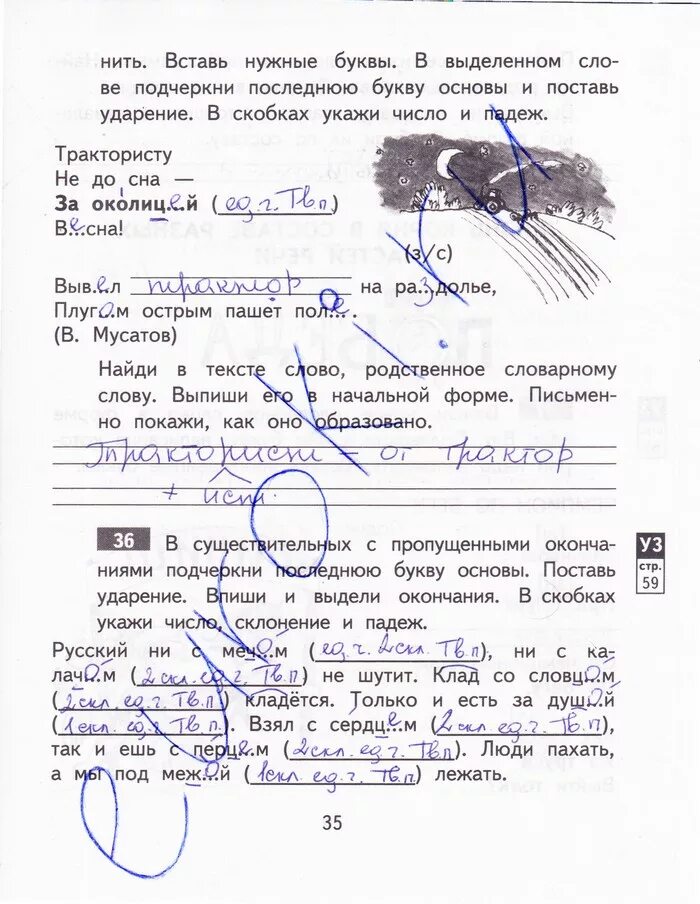 нить. Вставь нужные буквы. В выделенном сло-
ве подчеркни последнюю букву основы и поставь
ударение. В скобках укажи число и падеж.
Трактористу
Не до сна —
За околиц.е.й (ед.ч. Тв.п)
В.е.сна!
(з/с)
Выв.е.л трактор на ра.з.долье,
Плуг.о.м острым пашет пол.е. .
(В. Мусатов)
Найди в тексте слово, родственное словарному
слову. Выпиши его в начальной форме. Письмен-
но покажи, как оно образовано.
Тракторист – от трактор
+ ист.
36 В существительных с пропущенными оконча-
ниями подчеркни последнюю букву основы. Поставь
ударение. Впиши и выдели окончания. В скобках
укажи число, склонение и падеж.
УЗ
стр.
59
Русский ни с меч.о.м (ед.ч. 2скл. Тв.п), ни с ка-
лач.о.м (2скл. ед.ч. Тв.п) не шутит. Клад со словц.о.м
(2скл. ед.ч. Тв.п) кладётся. Только и есть за душ.о.й
(1скл. ед.ч. Тв.п.). Взял с сердц.е.м (2скл. ед.ч. Тв.п),
так и ешь с перц.е.м (2скл. ед.ч. Тв.п). Люди пахать,
а мы под меж.о.й (1скл. ед.ч. Тв.п) лежать.
35